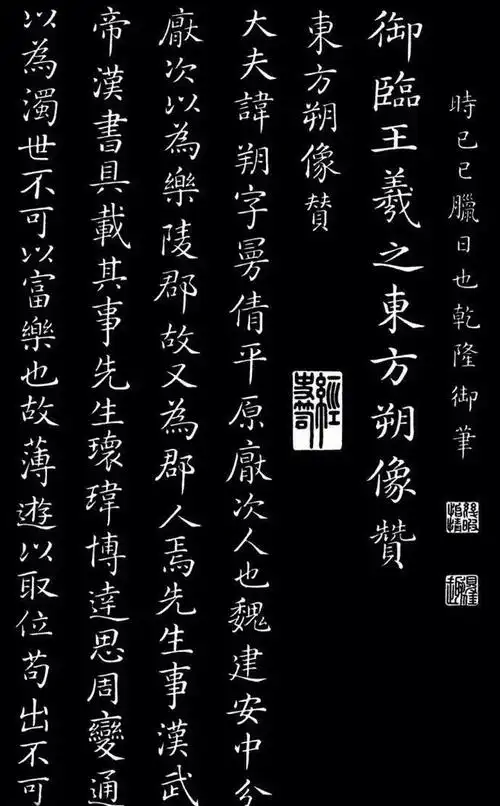 時己巳臘日也乾隆御筆
御臨王羲之東方朔像贊
東方朔像贊
大夫諱朔字曼倩平原厭次人也魏建安中分
厭次以為樂陵郡故又為郡人焉先生事漢武
帝漢書具載其事先生瓌瑋博達思周變通
以為濁世不可以富樂也故薄遊以取位苟出不可